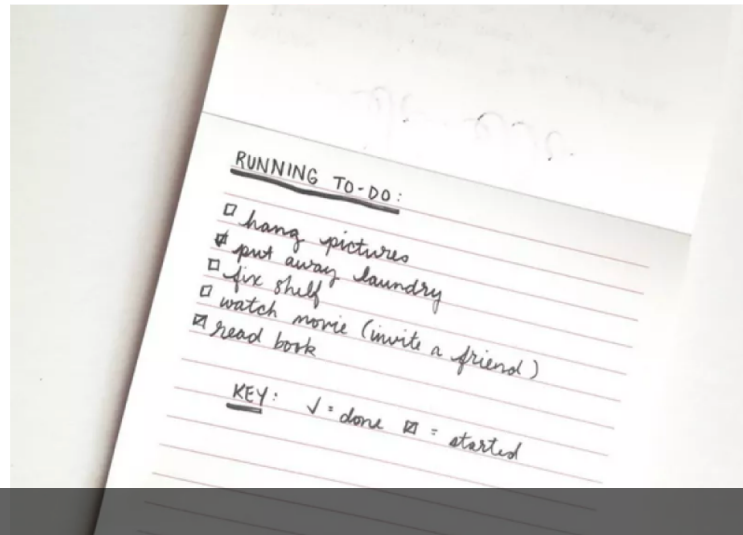 RUNNING TO-DO:
☐ hang pictures
☑ put away laundry
☐ fix shelf
☐ watch movie (invite a friend)
☑ read book
KEY: √ = done ☑ = started